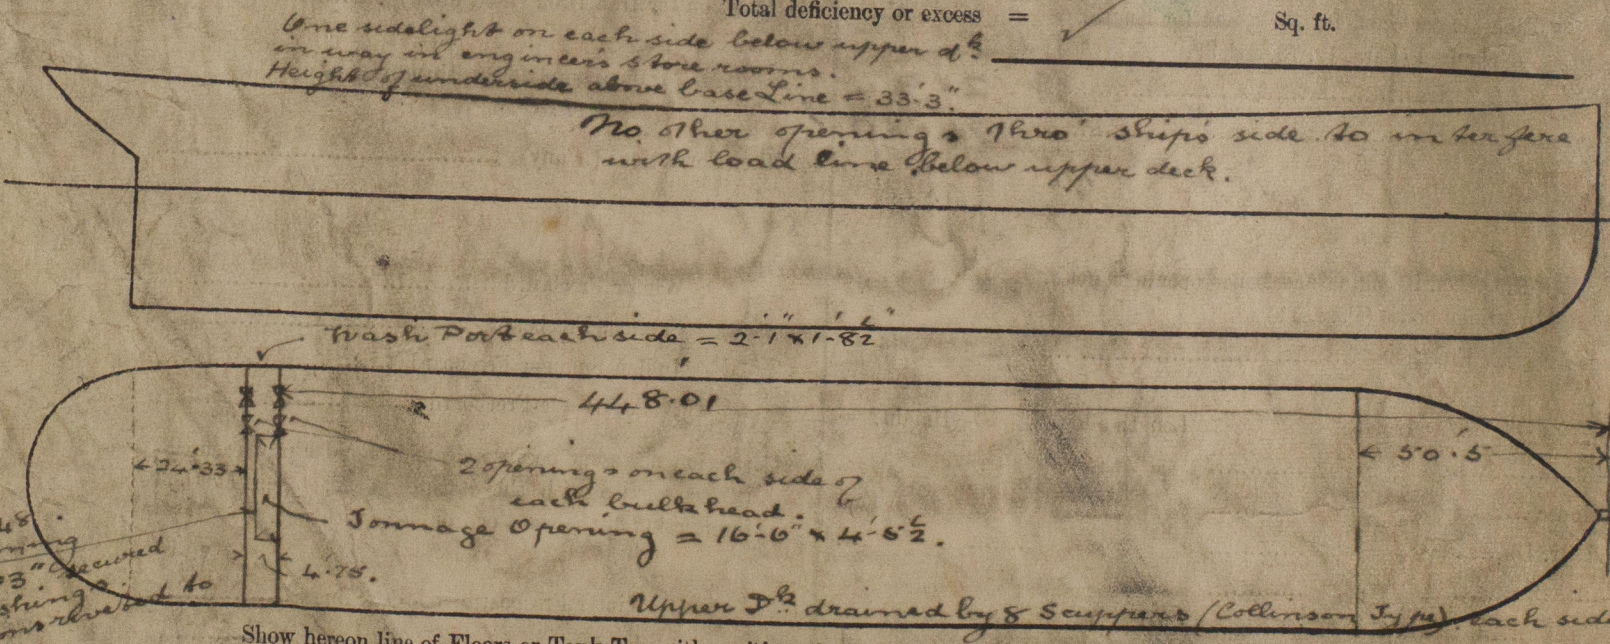 Total deficiency or excess = Sq. ft.
One sidelight on each side below upper dk
in way in engineer's store rooms.
Height of underside above base Line = 33'-3".
No other openings thro' ship's side to interfere
with load line below upper deck.
Wash Port each side = 2'-1" x 1'-8½"
448.01'
24'.33
50'.5
2 openings on each side of
each bulkhead.
Tonnage Opening = 16'-0" x 4'-5½.
48.
3" secured
4.75.
to
Upper Dk drained by 8 Scuppers (Collinson Type) each side
Show hereon line of Floors or Tank Top